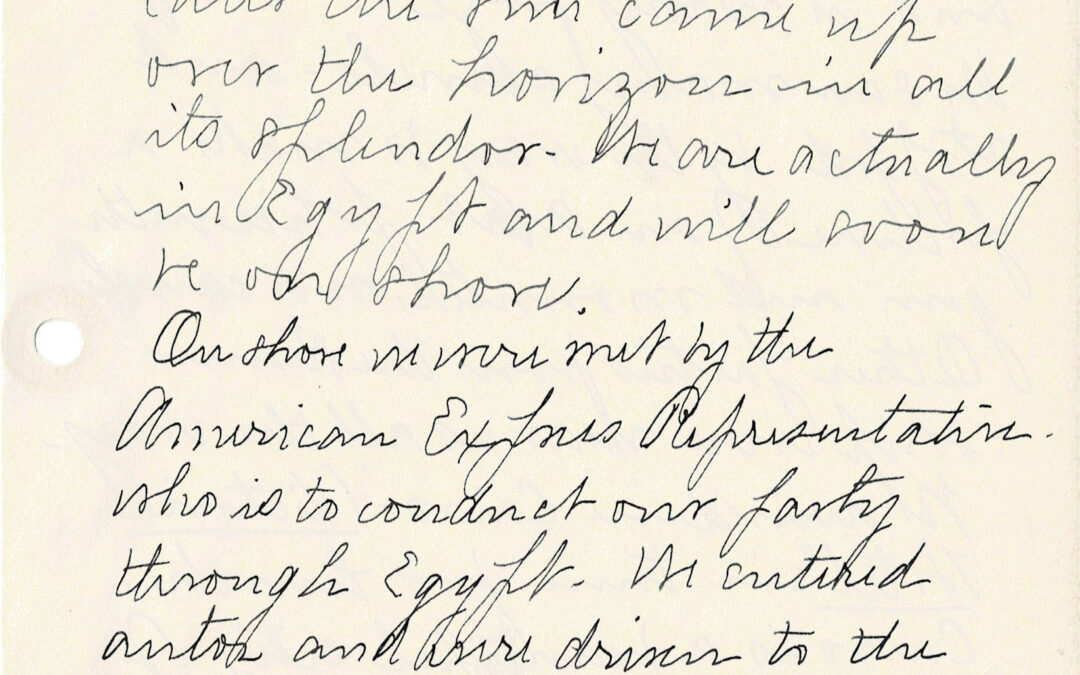 the sun came up
over the horizon in all
its splendor. We are actually
in Egypt and will soon
be on shore.
On shore we were met by the
American Express Representative.
who is to conduct our party
through Egypt. We entered
autos and were driven to the